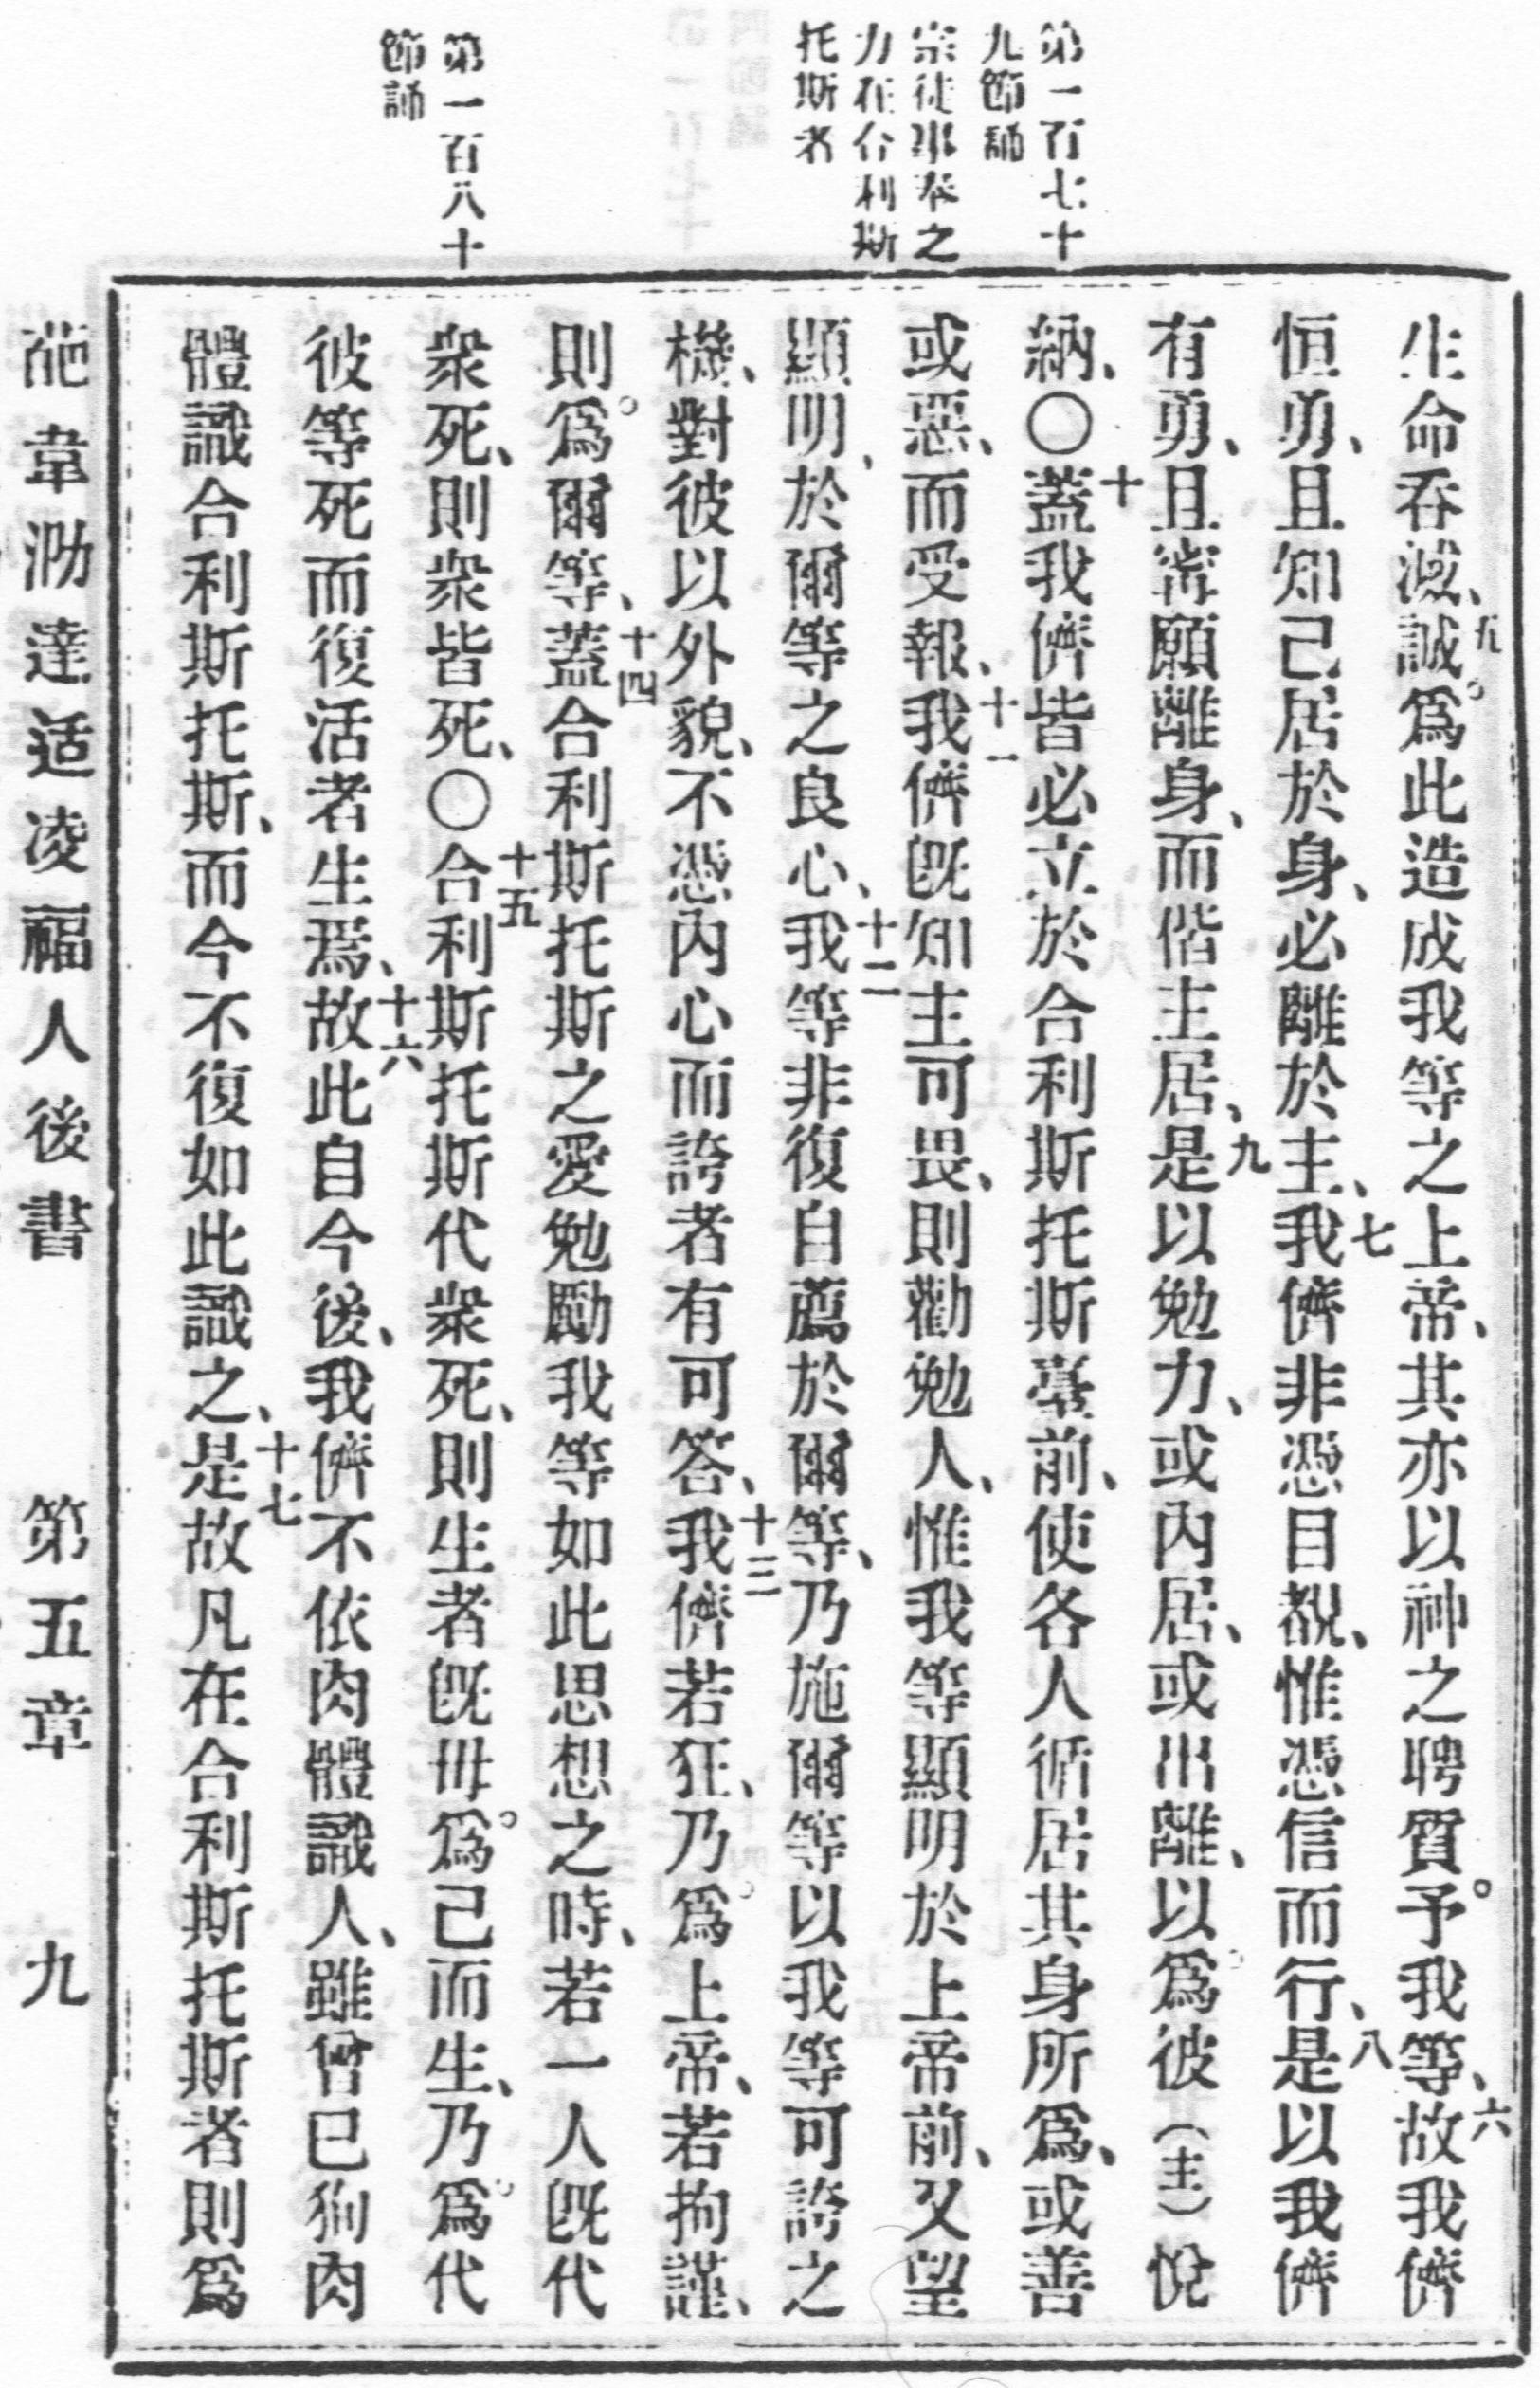 第一百七十
九節誦
宗徒事奉之
力在合利斯
托斯者
第一百八十
節誦
生命吞滅、五誠爲此造成我等之上帝、其亦以神之聘質。予我等、六故我儕
恒勇、且知己居於身、必離於主、七我儕非憑目覩、惟憑信而行、八是以我儕
有勇、且甯願離身、而偕主居、九是以勉力、或內居、或出離、以爲彼（主）悅
納、〇十蓋我儕皆必立於合利斯托斯臺前、使各人循居其身所爲、或善
或惡、而受報、十一我儕旣知主可畏、則勸勉人、惟我等顯明於上帝前、又望
顯明、於爾等之良心、十二我等非復自薦於爾等、乃施爾等以我等可誇之
機、對彼以外貌、不憑內心而誇者有可答、十三我儕若狂、乃爲上帝、若拘謹、
則。爲爾等、十四蓋合利斯托斯之愛勉勵我等如此思想之時、若一人旣代
衆死、則衆皆死、〇十五合利斯托斯代衆死、則生者旣毋爲己而生、乃爲代
彼等死而復活者生焉、十六故此自今後、我儕不依肉體識人、雖曾已狥肉
體識合利斯托斯、而今不復如此識之、十七是故凡在合利斯托斯者則爲
韋泐達适凌福人後書 第五章 九